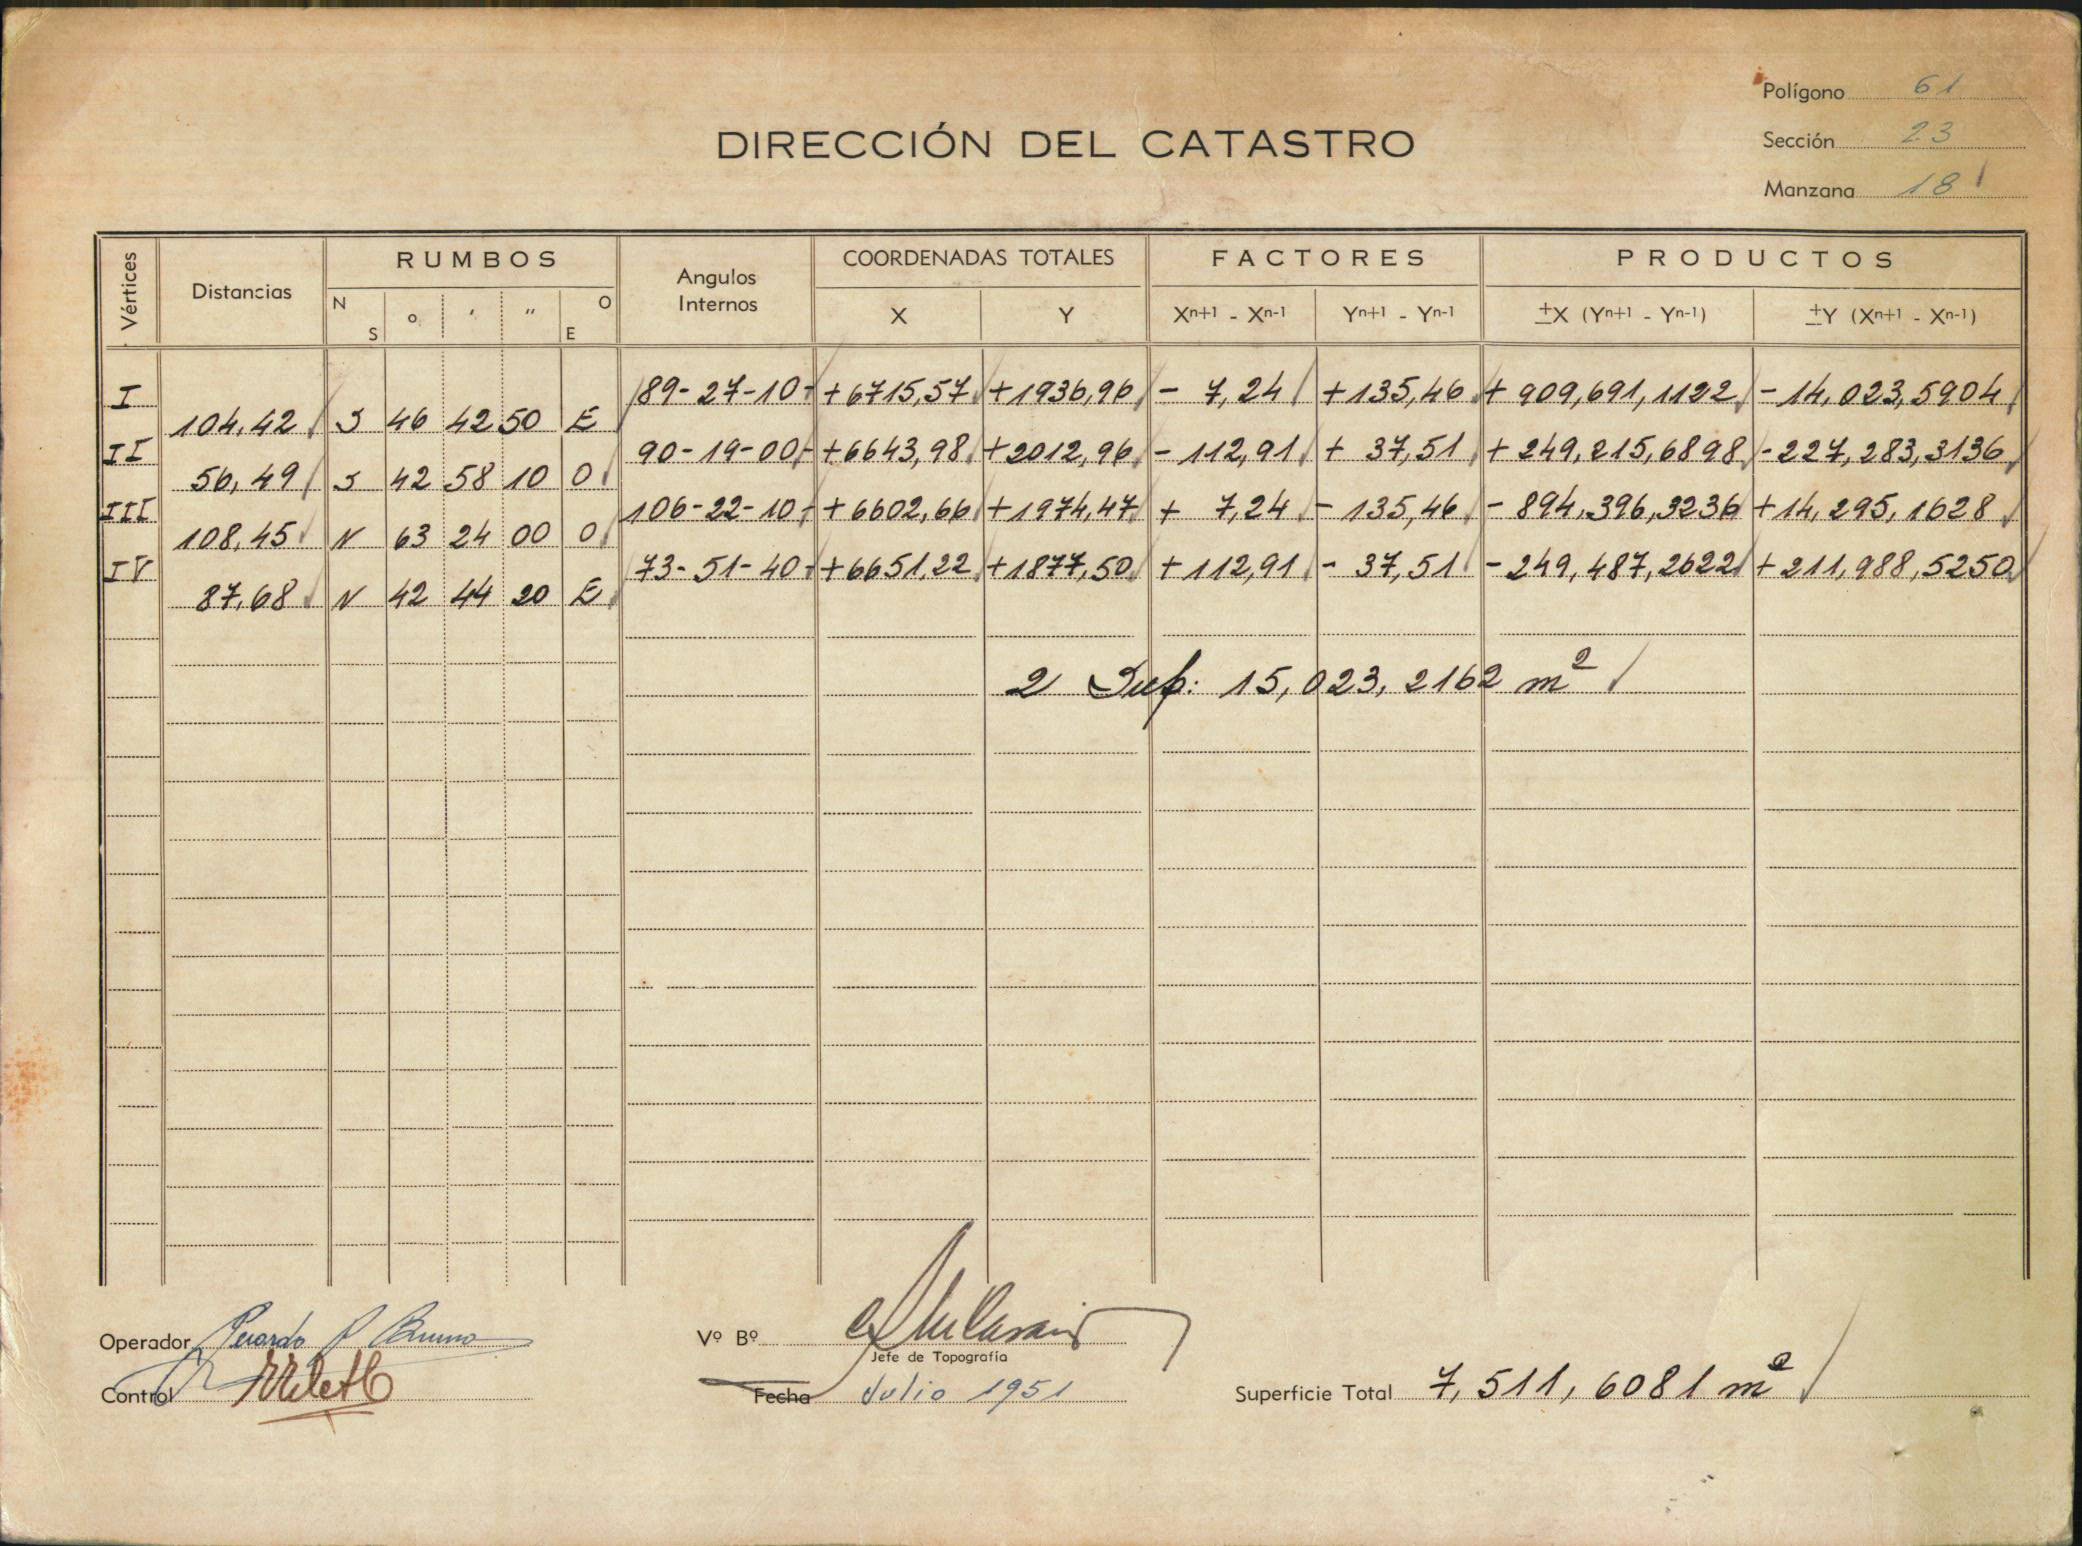 Polígono 61
DIRECCIÓN DEL CATASTRO
Sección 23
Manzana 18
Vértices Distancias RUMBOS Angulos Internos COORDENADAS TOTALES FACTORES PRODUCTOS
N S o ′ ″ O E X Y Xn+1 - Xn-1 Yn+1 - Yn-1 ±X (Yn+1 - Yn-1) ±Y (Xn+1 - Xn-1)
I 89-27-10 +6715,57 +1936,96 - 7,24 +135,46 + 909,691,1122 - 14,023,5904
104,42 S 46 42 50 E
II 90-19-00 +6643,98 +2012,96 - 112,91 + 37,51 + 249,215,6898 - 227,283,3136
56,49 S 42 58 10 O
III 106-22-10 +6602,66 +1974,47 + 7,24 - 135,46 - 894,396,3236 +14,295,1628
108,45 N 63 24 00 O
IV 73-51-40 +6651,22 +1877,50 +112,91 - 37,51 - 249,487,2622 +211,988,5250
87,68 N 42 44 20 E
2 Sup: 15,023,2162 m²
Operador
Vº Bº
Jefe de Topografía
Control
Fecha Julio 1951
Superficie Total 7,511,6081 m²